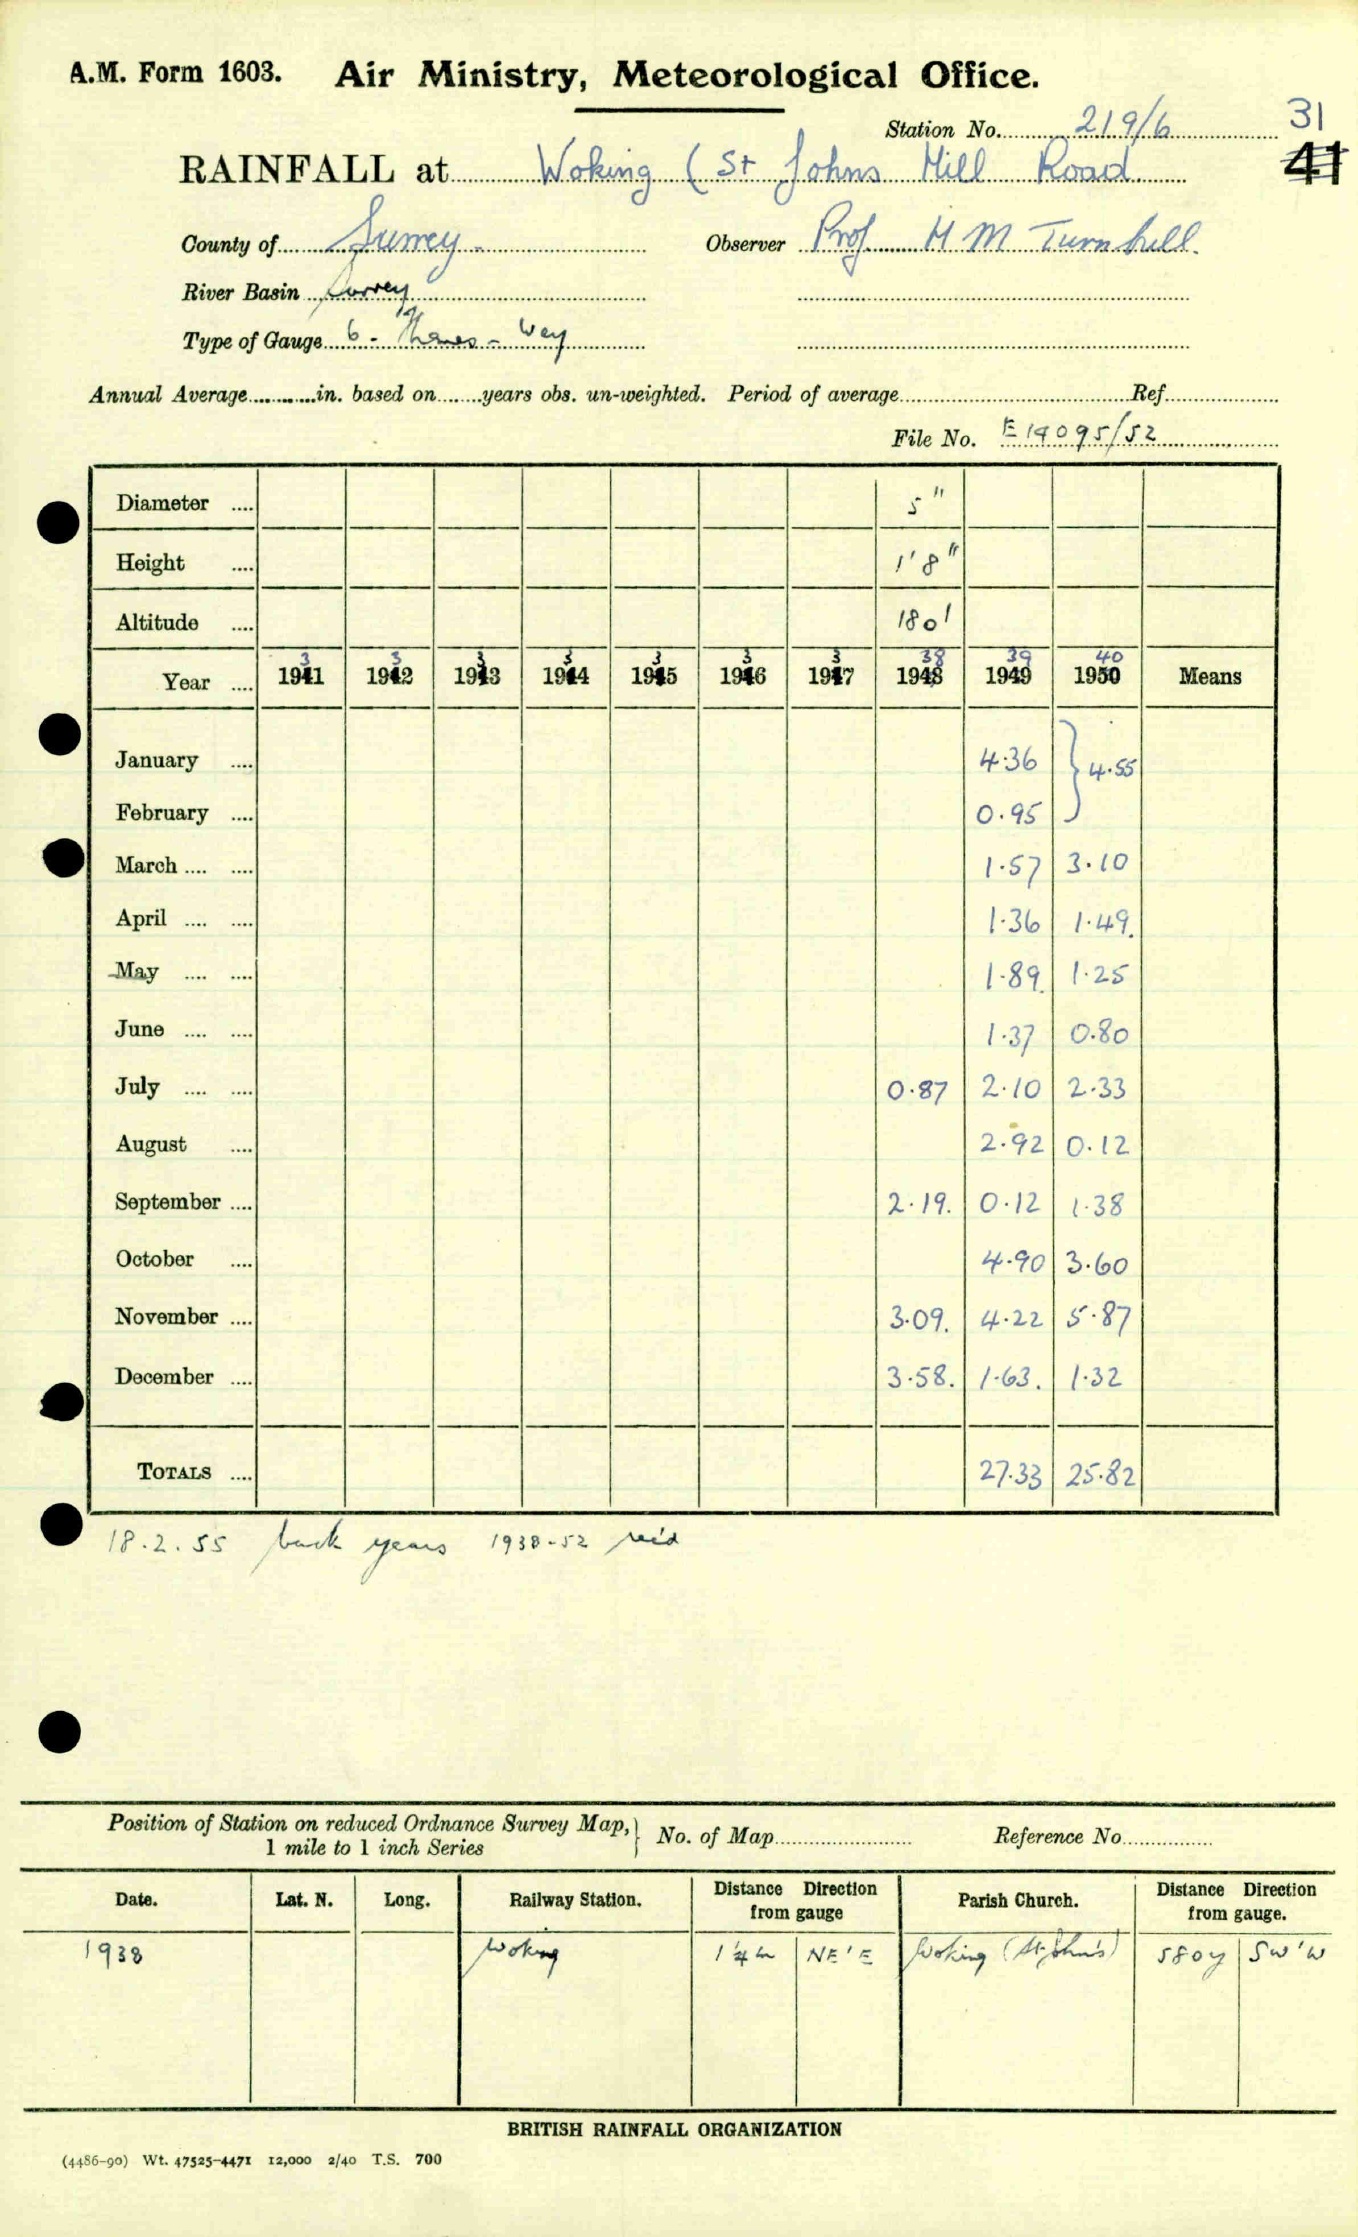 A.M. Form 1603. Air Ministry, Meteorological Office.
Station No. 219/6 31
41
RAINFALL at Woking (St Johns Hill Road
County of Surrey. Observer Prof H M Turnbull.
River Basin Surrey
Type of Gauge 6 - Thames - Wey
Annual Average in. based on years obs. un-weighted. Period of average Ref.
File No. E 19095/52
Diameter 5"
Height 1' 8"
Altitude 180'
3 3 3 3 3 3 3 38 39 40
Year 1941 1942 1943 1944 1945 1946 1947 1948 1949 1950 Means
January 4.36 } 4.55
February 0.95
March 1.57 3.10
April 1.36 1.49.
May 1.89. 1.25
June 1.37 0.80
July 0.87 2.10 2.33
August 2.92 0.12
September 2.19. 0.12 1.38
October 4.90 3.60
November 3.09. 4.22 5.87
December 3.58. 1.63. 1.32
TOTALS 27.33 25.82
18.2.55 back years 1938-52 rec'd
Position of Station on reduced Ordnance Survey Map, } No. of Map Reference No.
1 mile to 1 inch Series
Date. Lat. N. Long. Railway Station. Distance Direction from gauge Parish Church. Distance Direction from gauge.
1938 Woking 1¼m NE'E Woking (St. John's) 580y SW'W
BRITISH RAINFALL ORGANIZATION
(4486-90) Wt. 47525-4471 12,000 2/40 T.S. 700